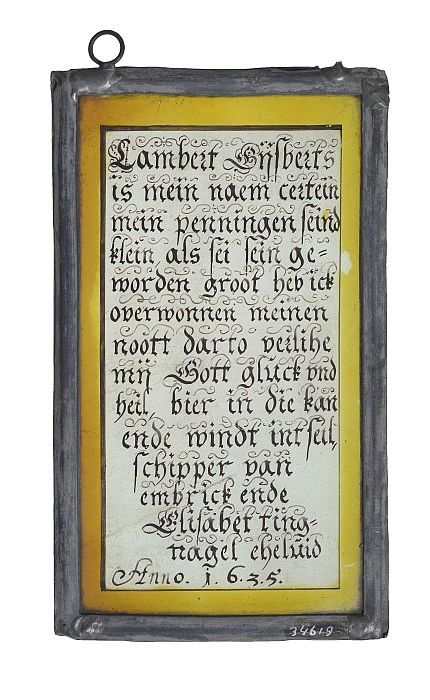 Lambert Gijsberts
is mein naem certein
mein penningen seind
klein als sei sein ge=
worden groot heb ick
overwonnen meinen
noott darto verlihe
mij Gott gluck vnd
heil, bier in die kan
ende windt int seil,
schipper van
embrick ende
Elisabet ting=
nagel eheluid
Anno. 1. 6. 3. 5.
34619